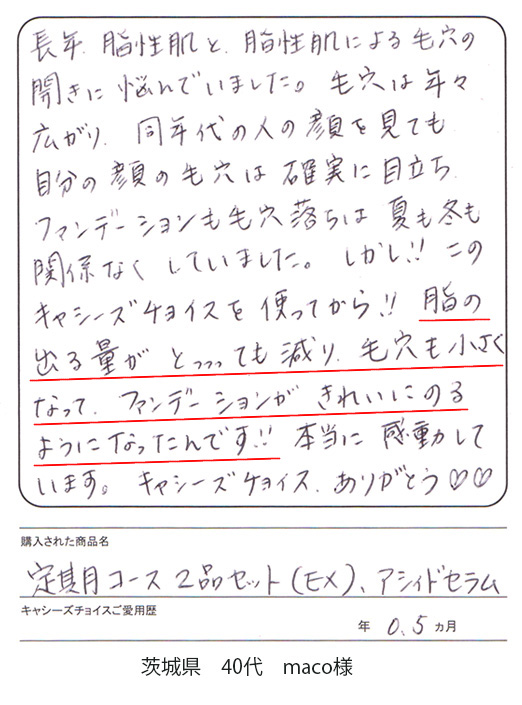 長年、脂性肌と、脂性肌による毛穴の
開きに悩んでいました。毛穴は年々
広がり、同年代の人の顔を見ても
自分の顔の毛穴は確実に目立ち、
ファンデーションも毛穴落ちは夏も冬も
関係なくしていました。しかし!! この
キャシーズチョイスを使ってから!! 脂の
出る量がとっっっても減り、毛穴も小さく
なって、ファンデーションがきれいにのる
ようになったんです!! 本当に感動して
います。キャシーズチョイス、ありがとう♡♡
購入された商品名
定期月コース 2品セット(EX)、アシィドセラム
キャシーズチョイスご愛用歴
年 0.5 ヵ月
茨城県 40代 maco様